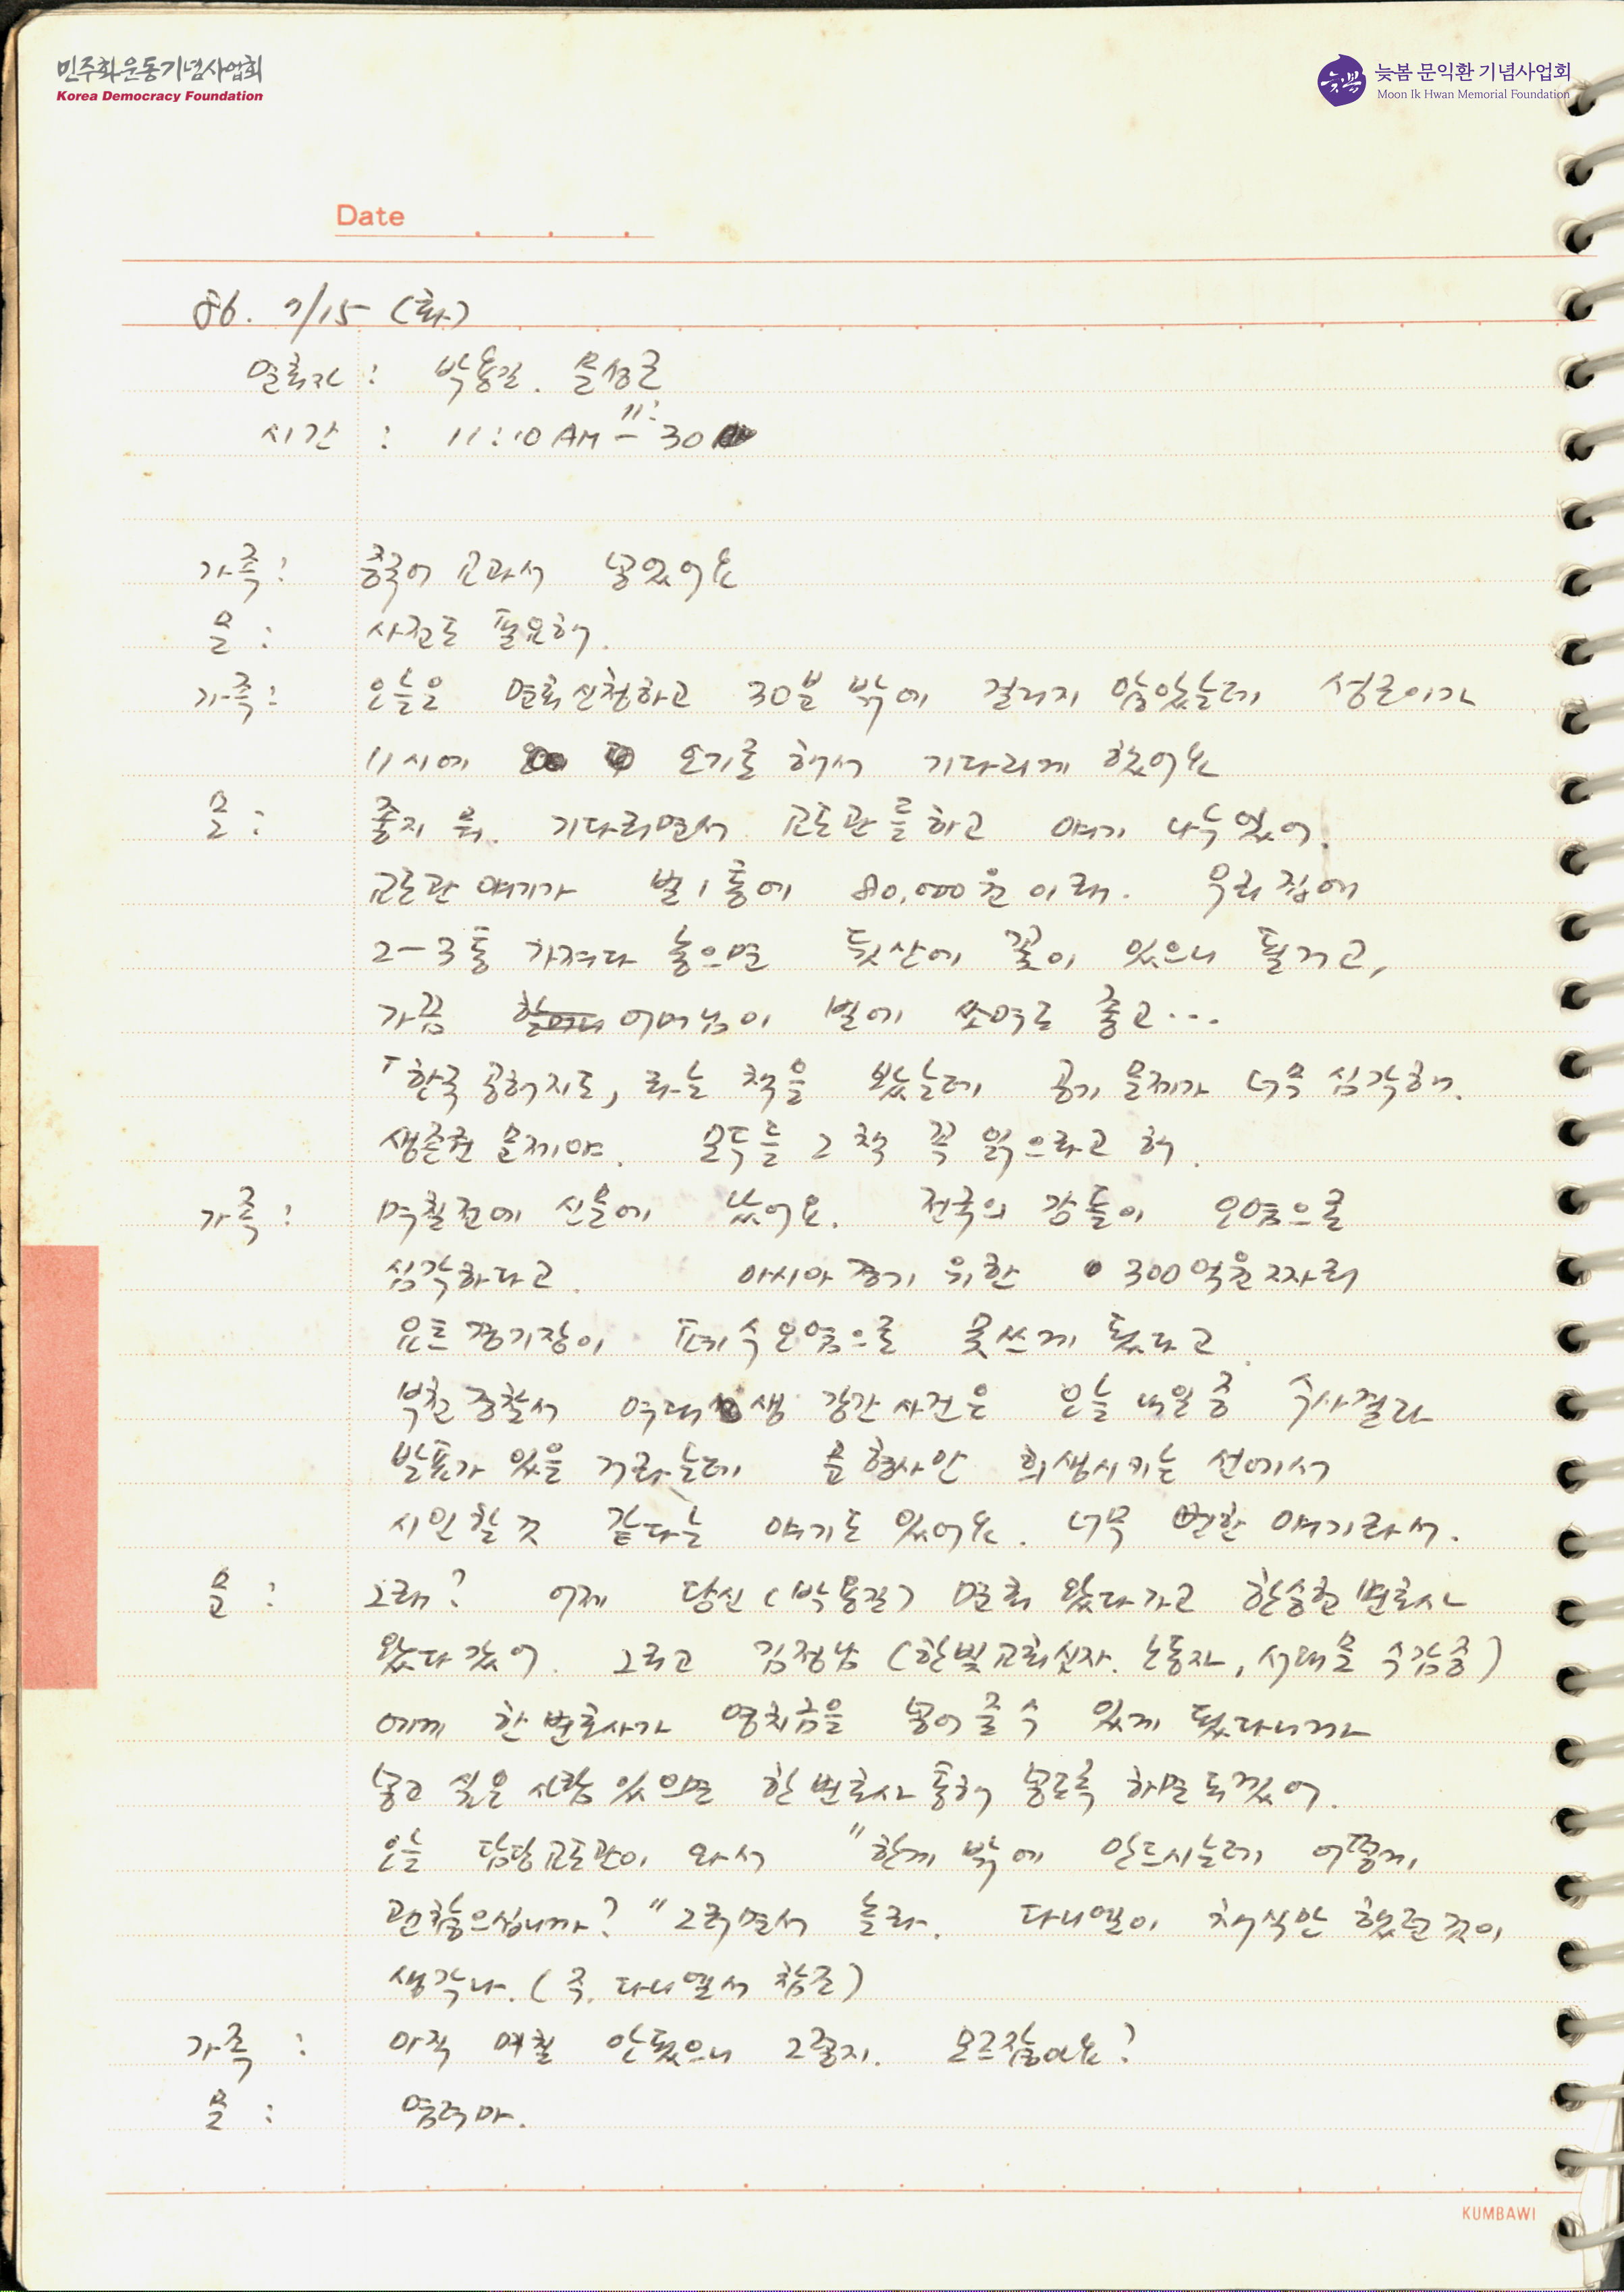 민주화운동기념사업회
Korea Democracy Foundation
늦봄 문익환 기념사업회
Moon Ik Hwan Memorial Foundation
Date
86. 7/15 (화)
면회자 : 박용길. 문성근
시간 : 11:10 AM - 11: 30
가족 : 중국어 교과서 넣었어요
문 : 사전도 필요해.
가족 : 오늘은 면회신청하고 30분 밖에 걸리지 않았는데 성근이가
11시에 오기로 해서 기다리게 했어요
문 : 좋지 뭐. 기다리면서 교도관들하고 얘기 나누었어.
교도관 얘기가 벌 1통에 80,000원 이래. 우리 집에
2-3통 가져다 놓으면 뒷산에 꽃이 있으니 될거고,
가끔 어머님이 벌에 쏘여도 좋고...
「한국 공해지도」 라는 책을 봤는데 공기 문제가 너무 심각해.
생존권 문제야. 모두들 그 책 꼭 읽으라고 해.
가족 : 며칠전에 신문에 났어요. 전국의 강들이 오염으로
심각하다고. 아시아 경기 위한 300억원짜리
요트 경기장이 폐수오염으로 못쓰게 됐다고.
부천 경찰서 여대생 강간 사건은 오늘 내일 중 수사결과
발표가 있을 거라는데 문 형사만 희생시키는 선에서
시인할 것 같다는 얘기도 있어요. 너무 뻔한 얘기라서.
문 : 그래? 어제 당신 (박용길) 면회 왔다가고 한승헌 변호사
왔다 갔어. 그리고 김정남 (한빛교회신자. 노동자, 서대문 수감중)
에게 한 변호사가 영치금을 넣어 줄 수 있게 됐다니까
넣고 싶은 사람 있으면 한 변호사 통해 넣도록 하면 되겠어.
오늘 담당 교도관이 와서 "한끼 밖에 안드시는데 어떻게
괜찮으십니까?" 그러면서 놀라. 다니엘이 채식만 했던 것이
생각나. (주. 다니엘서 참조)
가족 : 아직 며칠 안됐으니 그렇지. 모르잖아요?
문 : 염려마.
KUMBAWI